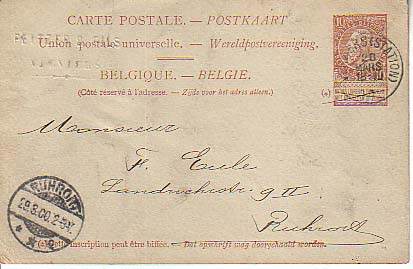 CARTE POSTALE. — POSTKAART
Union postale universelle. — Wereldpostvereeniging.
BELGIQUE. — BELGIE.
(Côté réservé à l'adresse. — Zijde voor het adres alleen.)
(a)
10
(STATION)
28
MARS
Monsieur
F. Eule
Landwehrstr. 9 II
Ruhrort
RUHRORT
29.3.00.
(a) Cette inscription peut être biffée. — Dit opschrift mag doorgehaald worden.